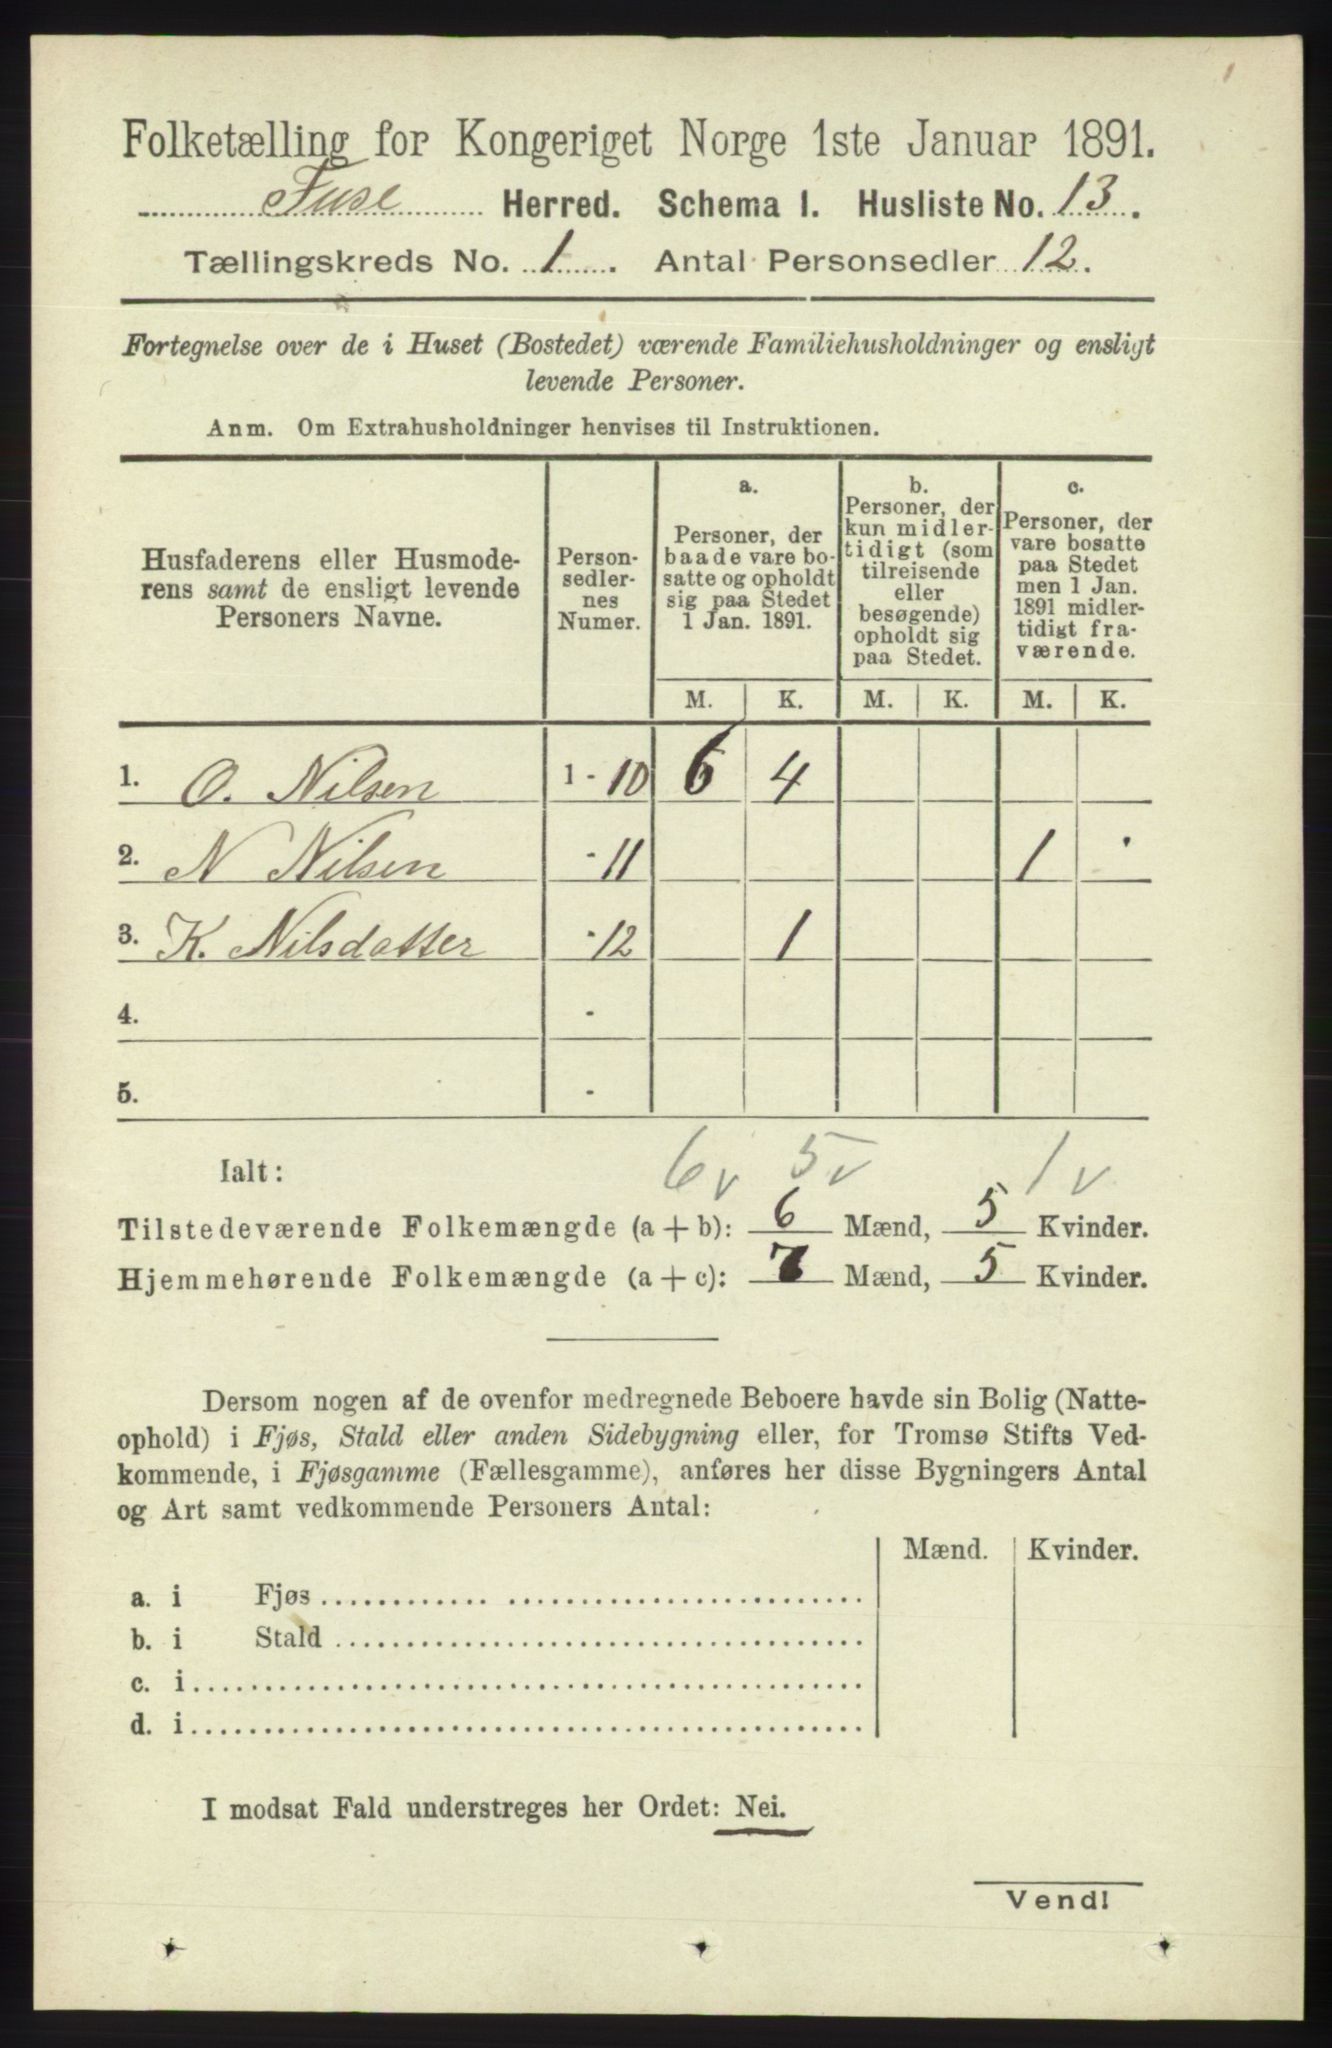 Folketælling for Kongeriget Norge 1ste Januar 1891.
Fuse Herred. Schema I. Husliste No. 13.
Tællingskreds No. 1. Antal Personsedler 12.
Fortegnelse over de i Huset (Bostedet) værende Familiehusholdninger og ensligt
levende Personer.
Anm. Om Extrahusholdninger henvises til Instruktionen.
Husfaderens eller Husmode-
rens samt de ensligt levende
Personers Navne.
Person-
sedler-
nes
Numer.
a.
Personer, der
baade vare bo-
satte og opholdt
sig paa Stedet
1 Jan. 1891.
b.
Personer, der
kun midler-
tidigt (som
tilreisende
eller
besøgende)
opholdt sig
paa Stedet.
c.
Personer, der
vare bosatte
paa Stedet
men 1 Jan.
1891 midler-
tidigt fra-
værende.
M. K. M. K. M. K.
1. O. Nilsen 1 - 10 6 4
2. N Nilsen - 11 1 ·
3. K. Nilsdatter - 12 1
4. -
5. -
6v 5v 1v
Ialt:
Tilstedeværende Folkemængde (a + b): 6 Mænd, 5 Kvinder.
Hjemmehørende Folkemængde (a + c): 7 Mænd, 5 Kvinder.
Dersom nogen af de ovenfor medregnede Beboere havde sin Bolig (Natte-
ophold) i Fjøs, Stald eller anden Sidebygning eller, for Tromsø Stifts Ved-
kommende, i Fjøsgamme (Fællesgamme), anføres her disse Bygningers Antal
og Art samt vedkommende Personers Antal:
Mænd. Kvinder.
a. i Fjøs
b. i Stald
c. i
d. i
I modsat Fald understreges her Ordet: Nei.
Vend!